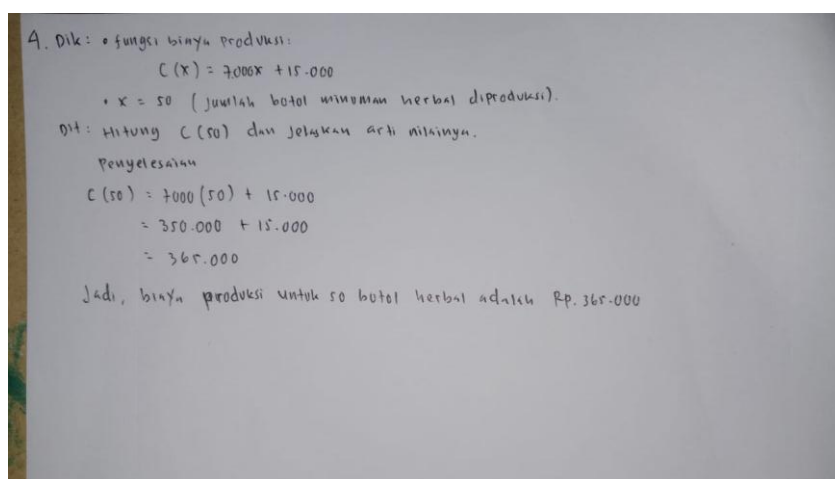 4. Dik: • fungsi binya produksi:
C(x) = 7.000x + 15.000
• x = 50 (jumlah botol minuman herbal diproduksi).
Dit: Hitung C(50) dan jelaskan arti nilainya.
Penyelesaian
C(50) = 7000(50) + 15.000
= 350.000 + 15.000
= 365.000
Jadi, biaya produksi untuk 50 botol herbal adalah Rp. 365.000